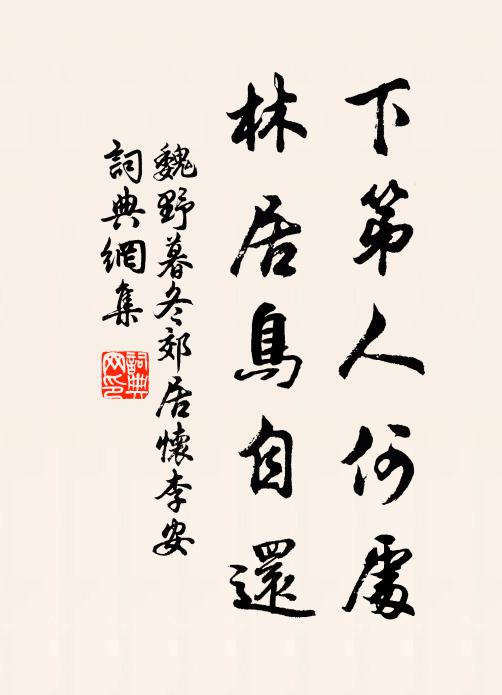 下第人何處
林居鳥自還
魏野暮冬郊居懷李安
詞典網集
詞典网印